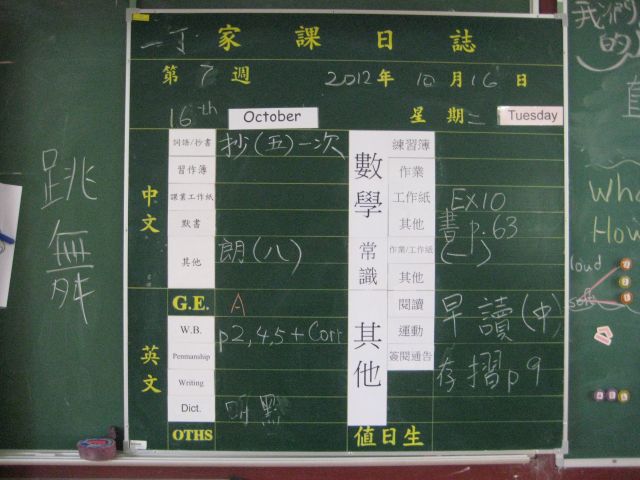 一丁 家課日誌
第 7 週 2012年 10月16日
16th October 星期二 Tuesday
跳舞
中文
詞語/抄書 抄(五)一次
習作簿
課業工作紙
默書
其他 朗(八)
英文
G.E. A
W.B. p2,4,5+Corr
Penmanship
Writing
Dict. 明默
OTHS
數學
練習簿
作業
工作紙 EX10
其他 書p.63
常識
作業/工作紙 (一)
其他
其他
閱讀 早讀(中)
運動
簽閱通告 存摺p9
值日生
我們
的
Wha
How
loud
soft